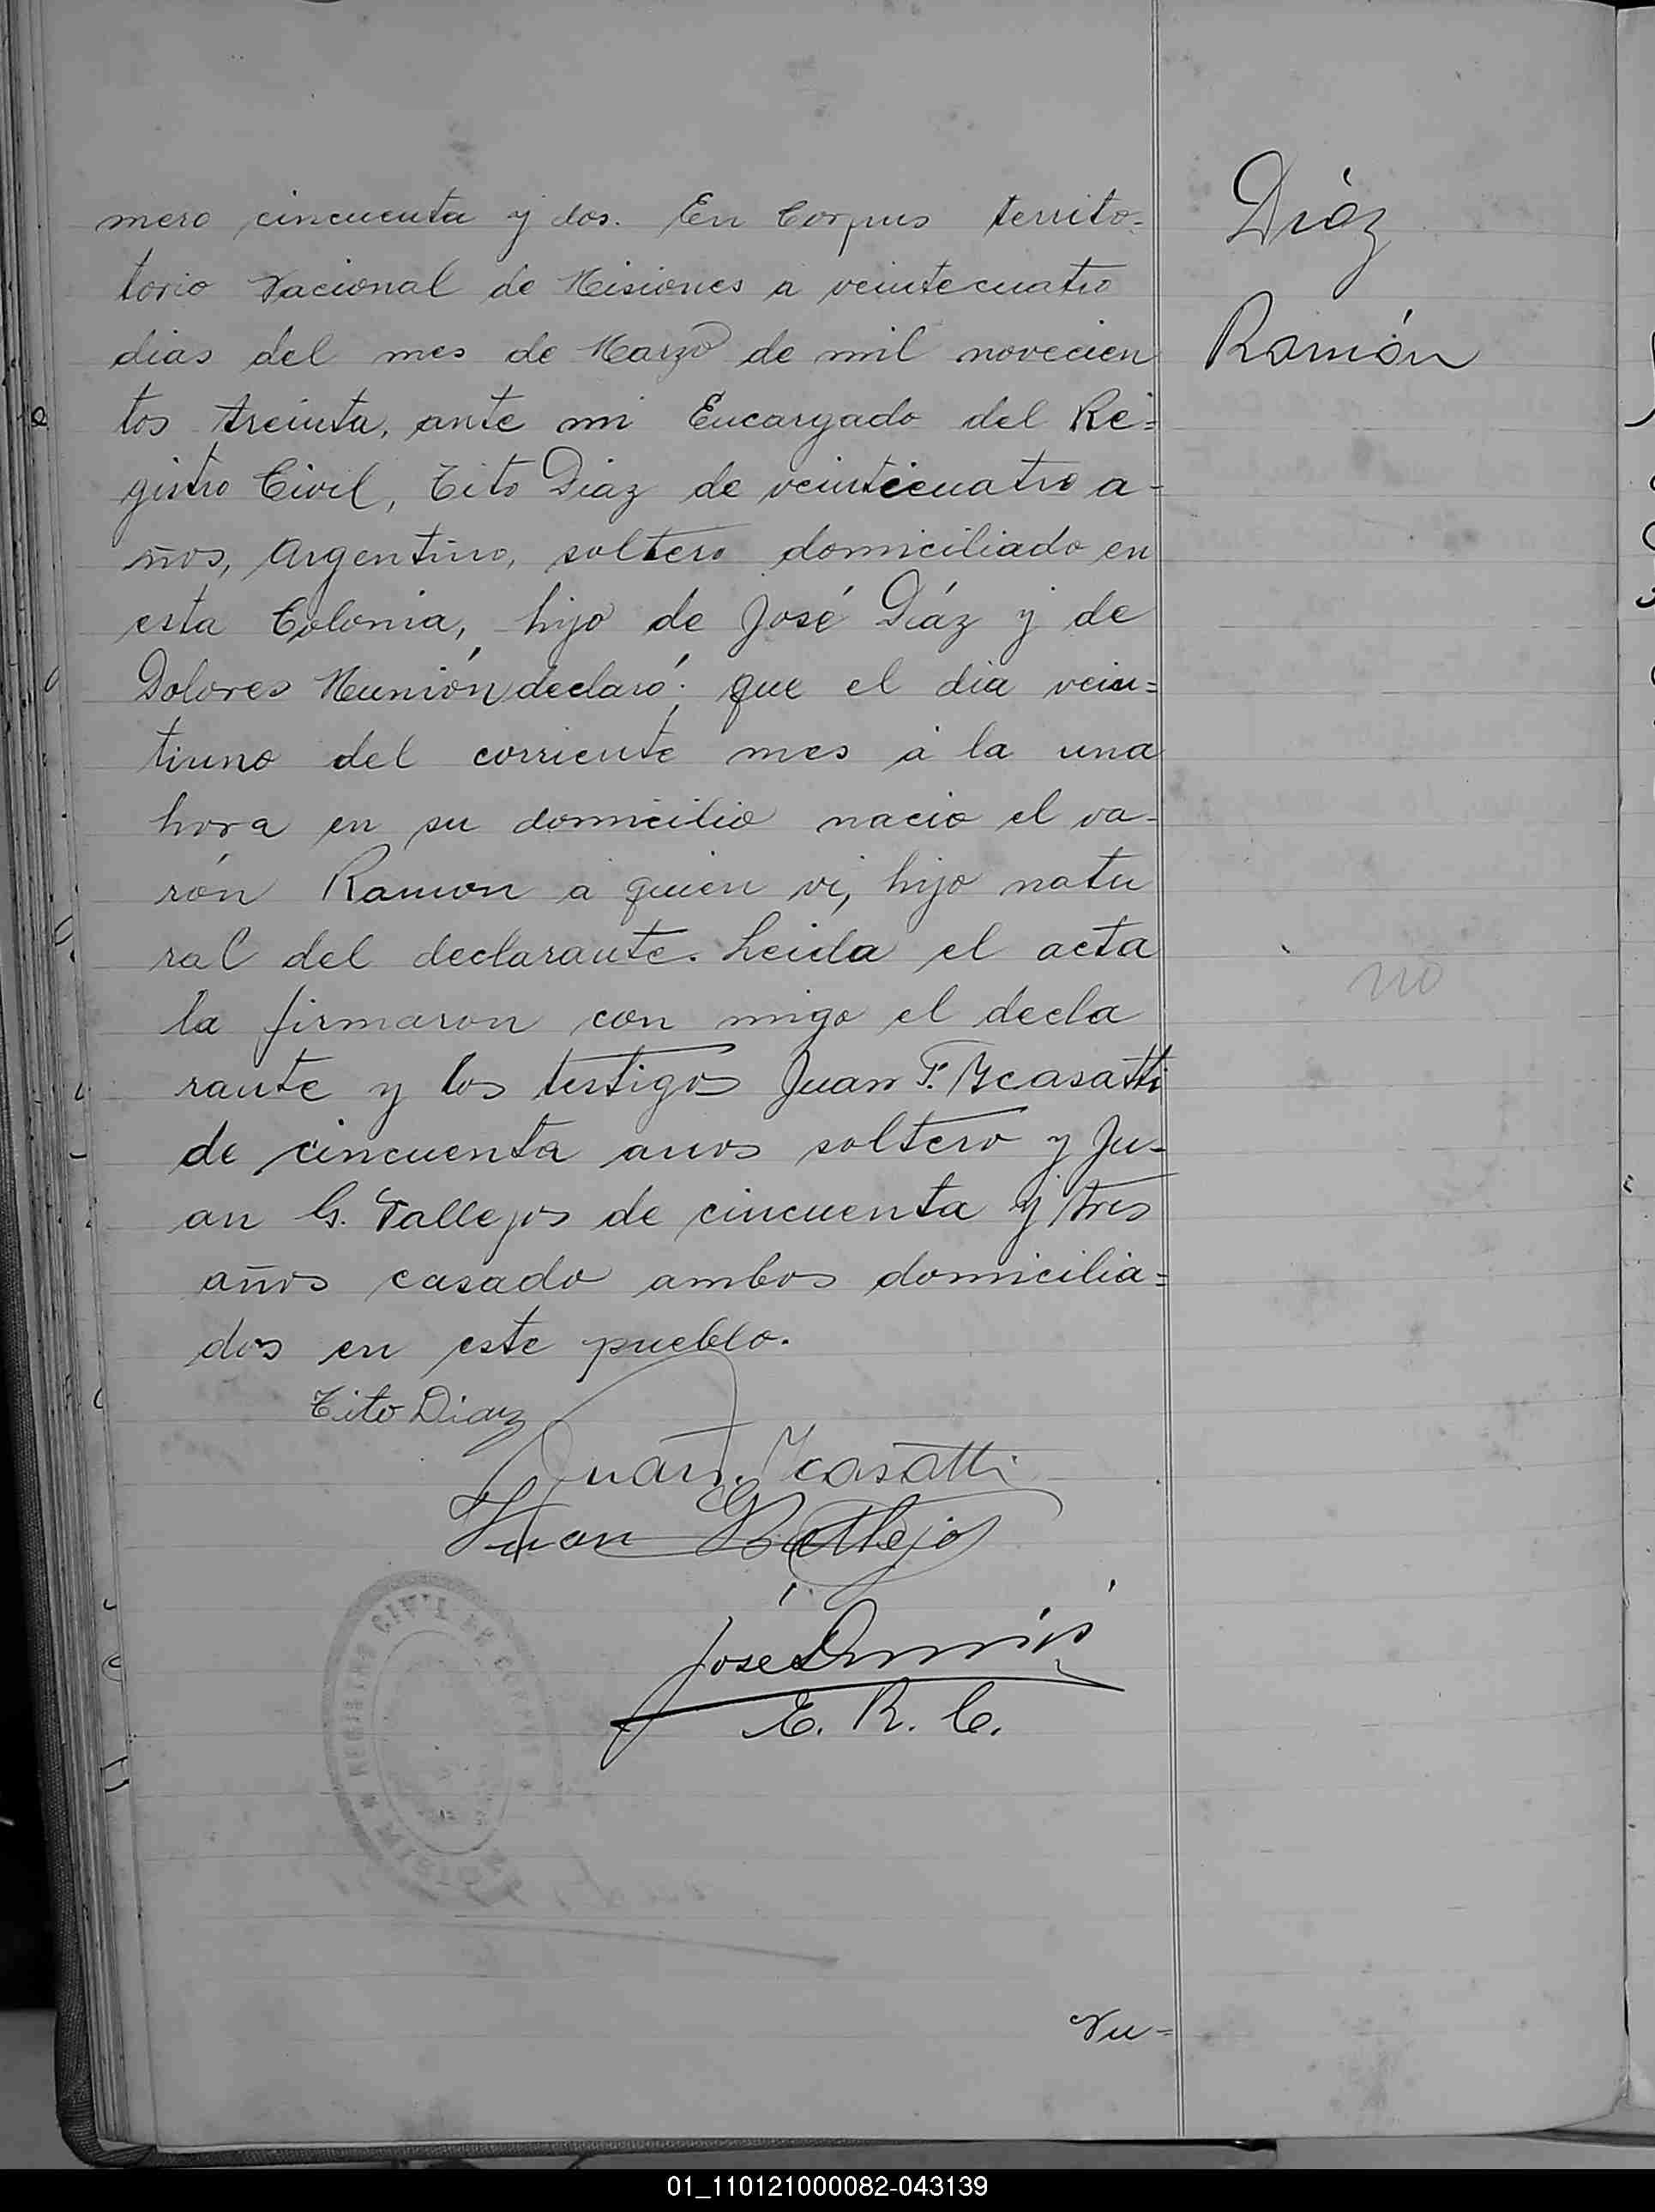 mero cincuenta y dos. En Corpus territo-
torio Nacional de Misiones a veintecuatro
dias del mes de Marzo de mil novecien
tos treinta, ante mi Encargado del Re=
gistro Civil, Tito Diaz de veintecuatro a-
ños, Argentino, soltero domiciliado en
esta Colonia, hijo de José Diáz y de
Dolores declaró: que el dia vein=
tiuno del corriente mes á la una
hora en su domicilio nacio el va-
rón Ramon a quien vi, hijo natu
ral del declarante. Leida el acta
la firmaron con migo el decla
rante y los testigos Juan F. Ycasatti
de cincuenta anos soltero y Ju-
an G. Vallejos de cincuenta y tres
años casado ambos domicilia=
dos en este pueblo.
Tito Diaz
Juan F. Ycasatti
Juan G Vallejos
José
E. R. C.
REGISTRO CIVIL DE CORPUS
Nu-
Diáz
Ramón
no
01_110121000082-043139